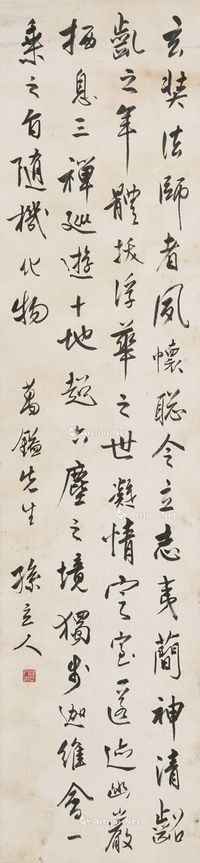 玄奘法師者夙懷聰令立志夷簡神清齠
齔之年體拔浮華之世凝情定室匿迹幽巖
栖息三禪巡遊十地超六塵之境獨步迦維會一
乘之旨隨機化物
萬鎰先生 孫立人